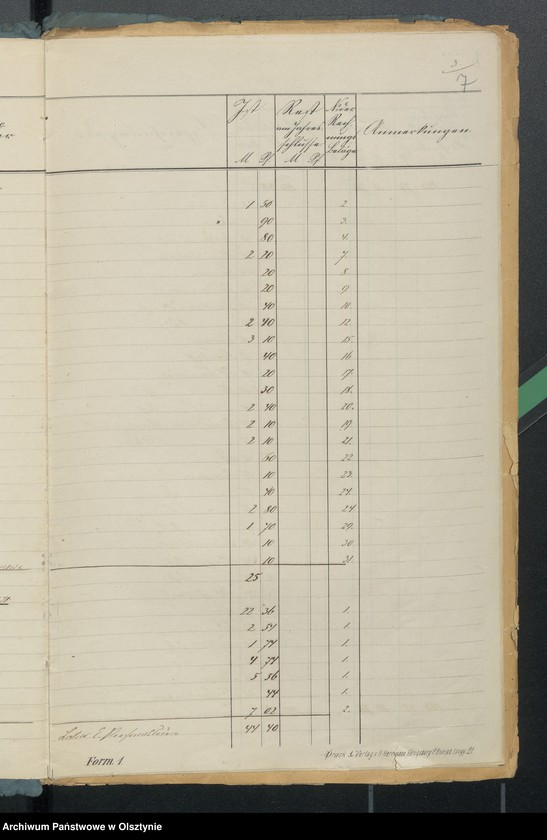 3/7
Ist
Rest am Jahres schlusse
Nr der Rechnungs beläge
Anmerkungen.
M Pf M Pf
1 50 2.
90 3.
80 4.
2 20 7.
20 8.
20 9.
40 10.
2 40 12.
3 10 15.
40 16.
20 17.
30 18.
2 40 20.
2 10 19.
2 10 21.
60 22
10 23.
40 24.
2 80 24
1 70 29.
10 30.
10 31.
25
22 36 1.
2 54 1.
1 74 1.
4 74 1.
5 56 1.
44 1.
7 02 2.
44 40
Form. 1
Druck & Verlag v.
Archiwum Państwowe w Olsztynie